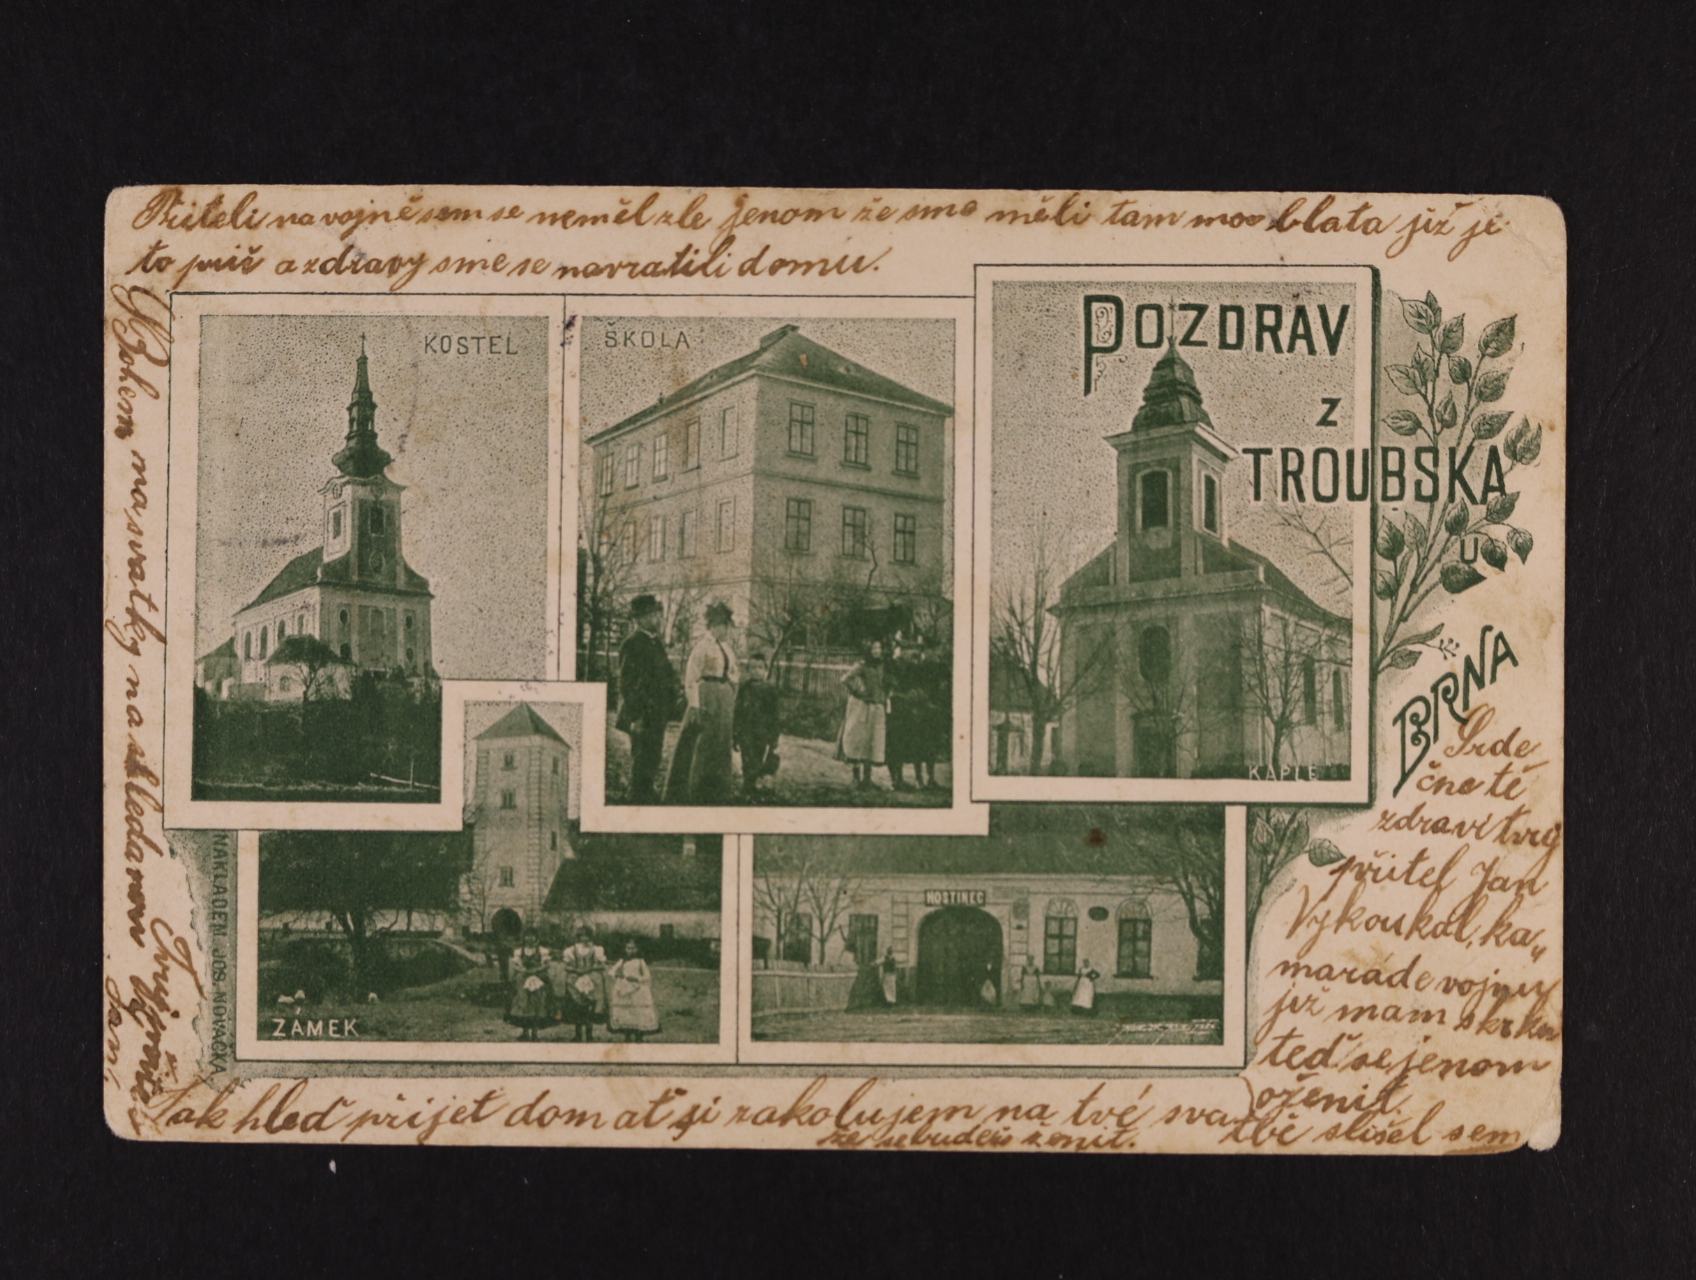 Přiteli na vojně sem se neměl zle jenom že sme měli tam moc blata již je
to prič a zdravy sme se navratili domu.
KOSTEL
ŠKOLA
POZDRAV
z
TROUBSKA
U
BRNA
KAPLE
ZÁMEK
HOSTINEC
NÁKLADEM JOS. NOVÁČKA
Srde
čne tě
zdravi tvuj
přitel Jan
Vykoukal, ka„
marade vojnu
již mam
teď se jenom
oženit.
Tak hleď přijet dom ať si zakolujem na tvé svatbě slišel sem
že se budeš ženit.
Z Bohem na svatky na shledanou